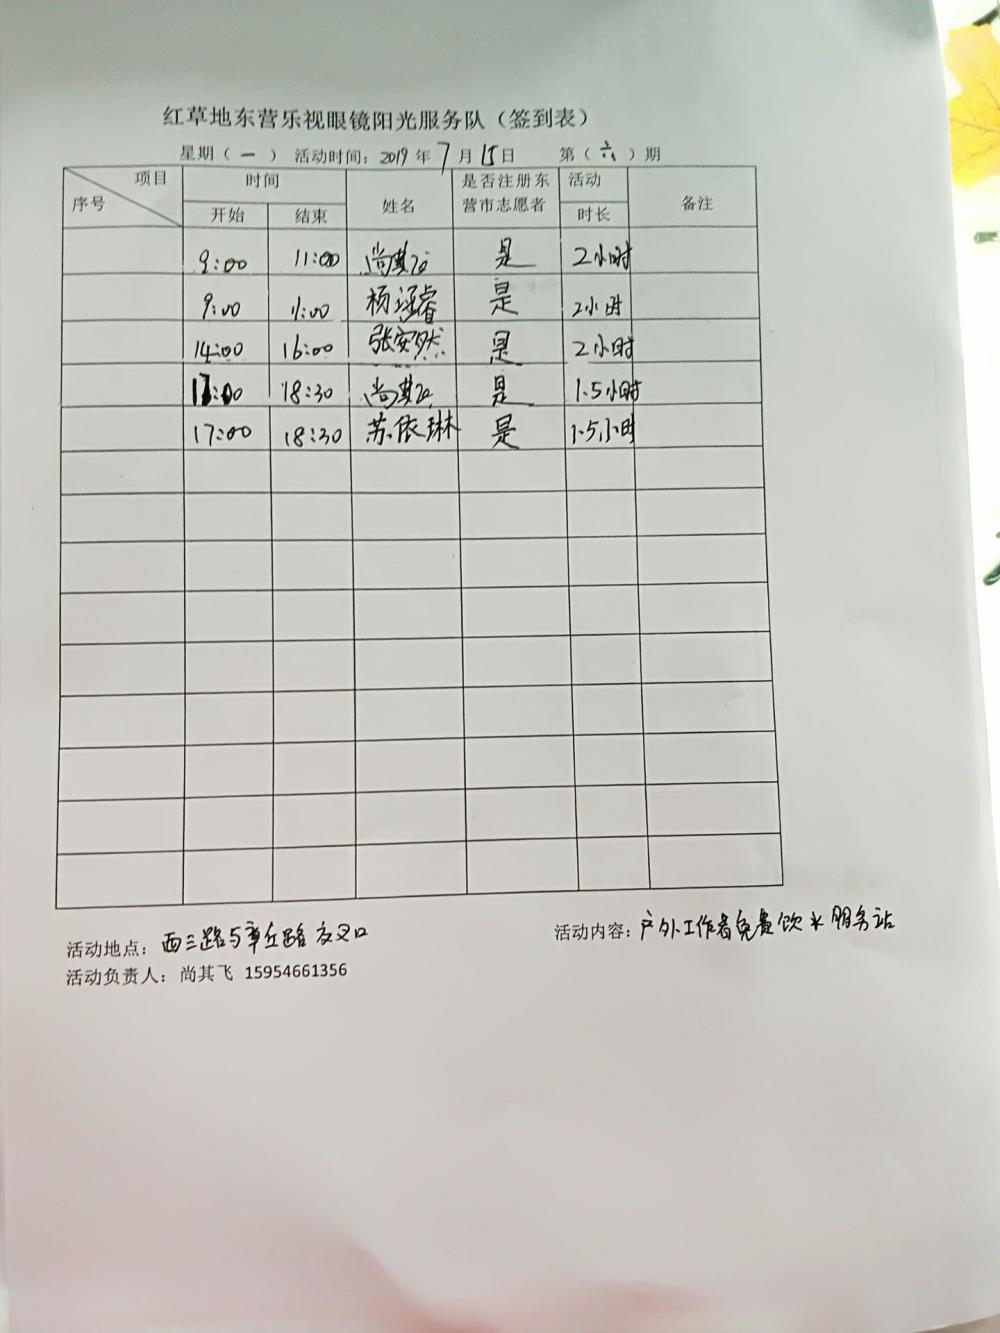 红草地东营乐视眼镜阳光服务队（签到表）
星期（一） 活动时间：2019年7月15日 第（六）期
项目 序号 时间 姓名 是否注册东营市志愿者 活动时长 备注
开始 结束
9:00 11:00 尚其 是 2小时
9:00 11:00 杨 睿 是 2小时
14:00 16:00 张安然 是 2小时
17:00 18:30 尚其 是 1.5小时
17:00 18:30 苏依琳 是 1.5小时
活动地点：西三路与章丘路交叉口 活动内容：户外工作者免费饮水服务站
活动负责人：尚其飞 15954661356